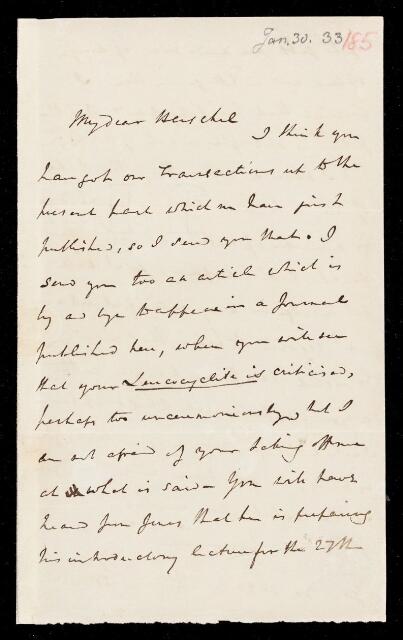 Jan. 30. 33 185
My dear Herschel
I think you
have got our Transactions up to the
present part which we have just
published, so I send you that. I
send you too an article which is
by and bye to appear in a Journal
published here, where you will see
that your Leucocyclite is criticised,
perhaps too unceremoniously, but I
am not afraid of your taking offence
at what is said – You will have
heard from Jones that he is preparing
his introductory lecture for the 27th